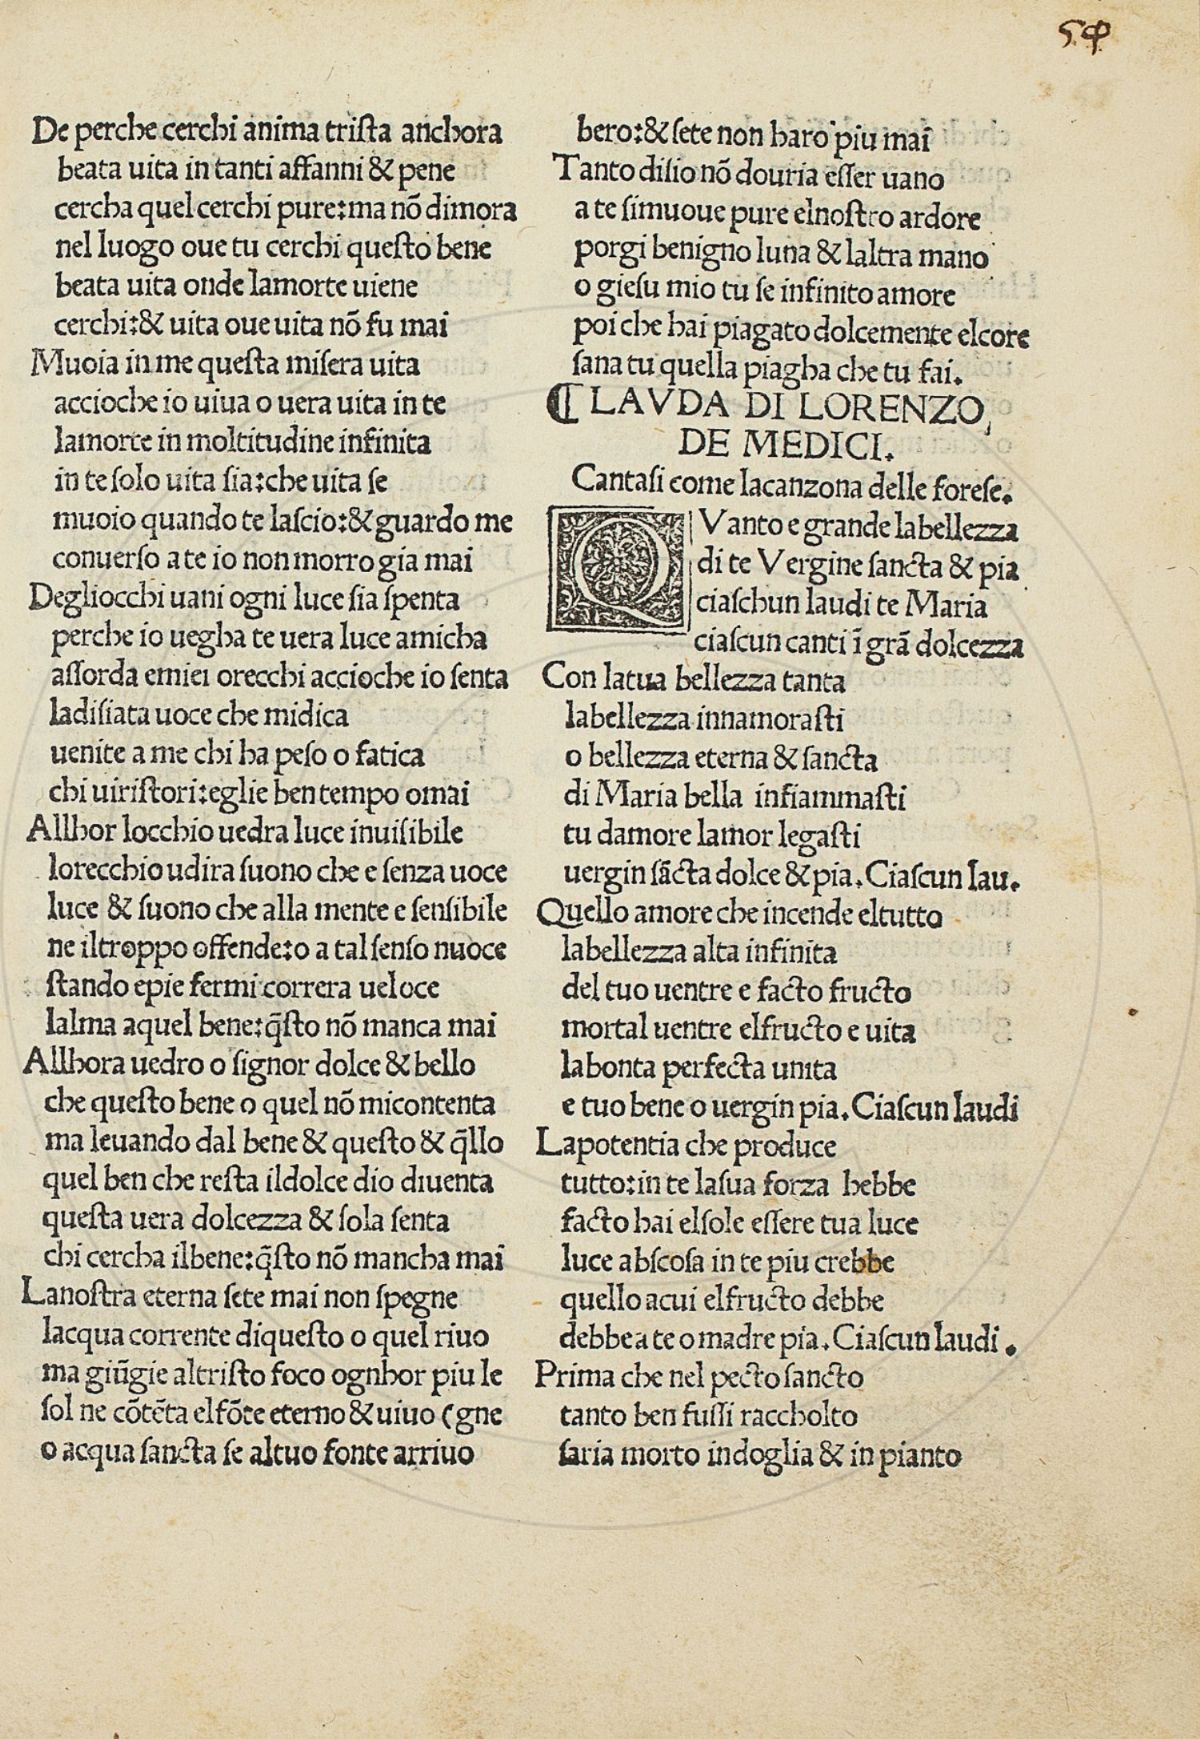 De perche cerchi anima trista anchora
beata uita in tanti affanni & pene
cercha quel cerchi pure:ma nõ dimora
nel luogo oue tu cerchi questo bene
beata uita onde lamorte uiene
cerchi:& uita oue uita nõ fu mai
Muoia in me questa misera uita
accioche io uiua o uera uita in te
lamorte in moltitudine infinita
in te solo uita sia:che uita se
muoio quando te lascio:& guardo me
conuerso a te io non morro gia mai
Degliocchi uani ogni luce sia spenta
perche io uegha te uera luce amicha
assorda emiei orecchi accioche io senta
ladisiata uoce che midica
uenite a me chi ha peso o fatica
chi uiristori:eglie ben tempo omai
Allhor locchio uedra luce inuisibile
lorecchio udira suono che e senza uoce
luce & suono che alla mente e sensibile
ne iltroppo offende:o a tal senso nuoce
stando epie fermi correra ueloce
lalma aquel bene:q̃sto nõ manca mai
Allhora uedro o signor dolce & bello
che questo bene o quel nõ micontenta
ma leuando dal bene & questo & q̃llo
quel ben che resta ildolce dio diuenta
questa uera dolcezza & sola senta
chi cercha ilbene:q̃sto nõ mancha mai
Lanostra eterna sete mai non spegne
lacqua corrente diquesto o quel riuo
ma giũgie altristo foco ognhor piu le
sol ne cõtẽta elfõte eterno & uiuo (gne
o acqua sancta se altuo fonte arriuo
bero:& sete non haro piu mai
Tanto disio nõ douria esser uano
a te simuoue pure elnostro ardore
porgi benigno luna & laltra mano
o giesu mio tu se infinito amore
poi che hai piagato dolcemente elcore
sana tu quella piagha che tu fai.
¶ LAVDA DI LORENZO
DE MEDICI.
Cantasi come lacanzona delle forese.
QVanto e grande labellezza
di te Vergine sancta & pia
ciaschun laudi te Maria
ciascun canti ĩ grã dolcezza
Con latua bellezza tanta
labellezza innamorasti
o bellezza eterna & sancta
di Maria bella infiammasti
tu damore lamor legasti
uergin sãcta dolce & pia. Ciascun lau.
Quello amore che incende eltutto
labellezza alta infinita
del tuo uentre e facto fructo
mortal uentre elfructo e uita
labonta perfecta unita
e tuo bene o uergin pia. Ciascun laudi
Lapotentia che produce
tutto:in te lasua forza hebbe
facto hai elsole essere tua luce
luce abscosa in te piu crebbe
quello acui elfructo debbe
debbe a te o madre pia. Ciascun laudi.
Prima che nel pecto sancto
tanto ben fussi raccholto
saria morto indoglia & in pianto